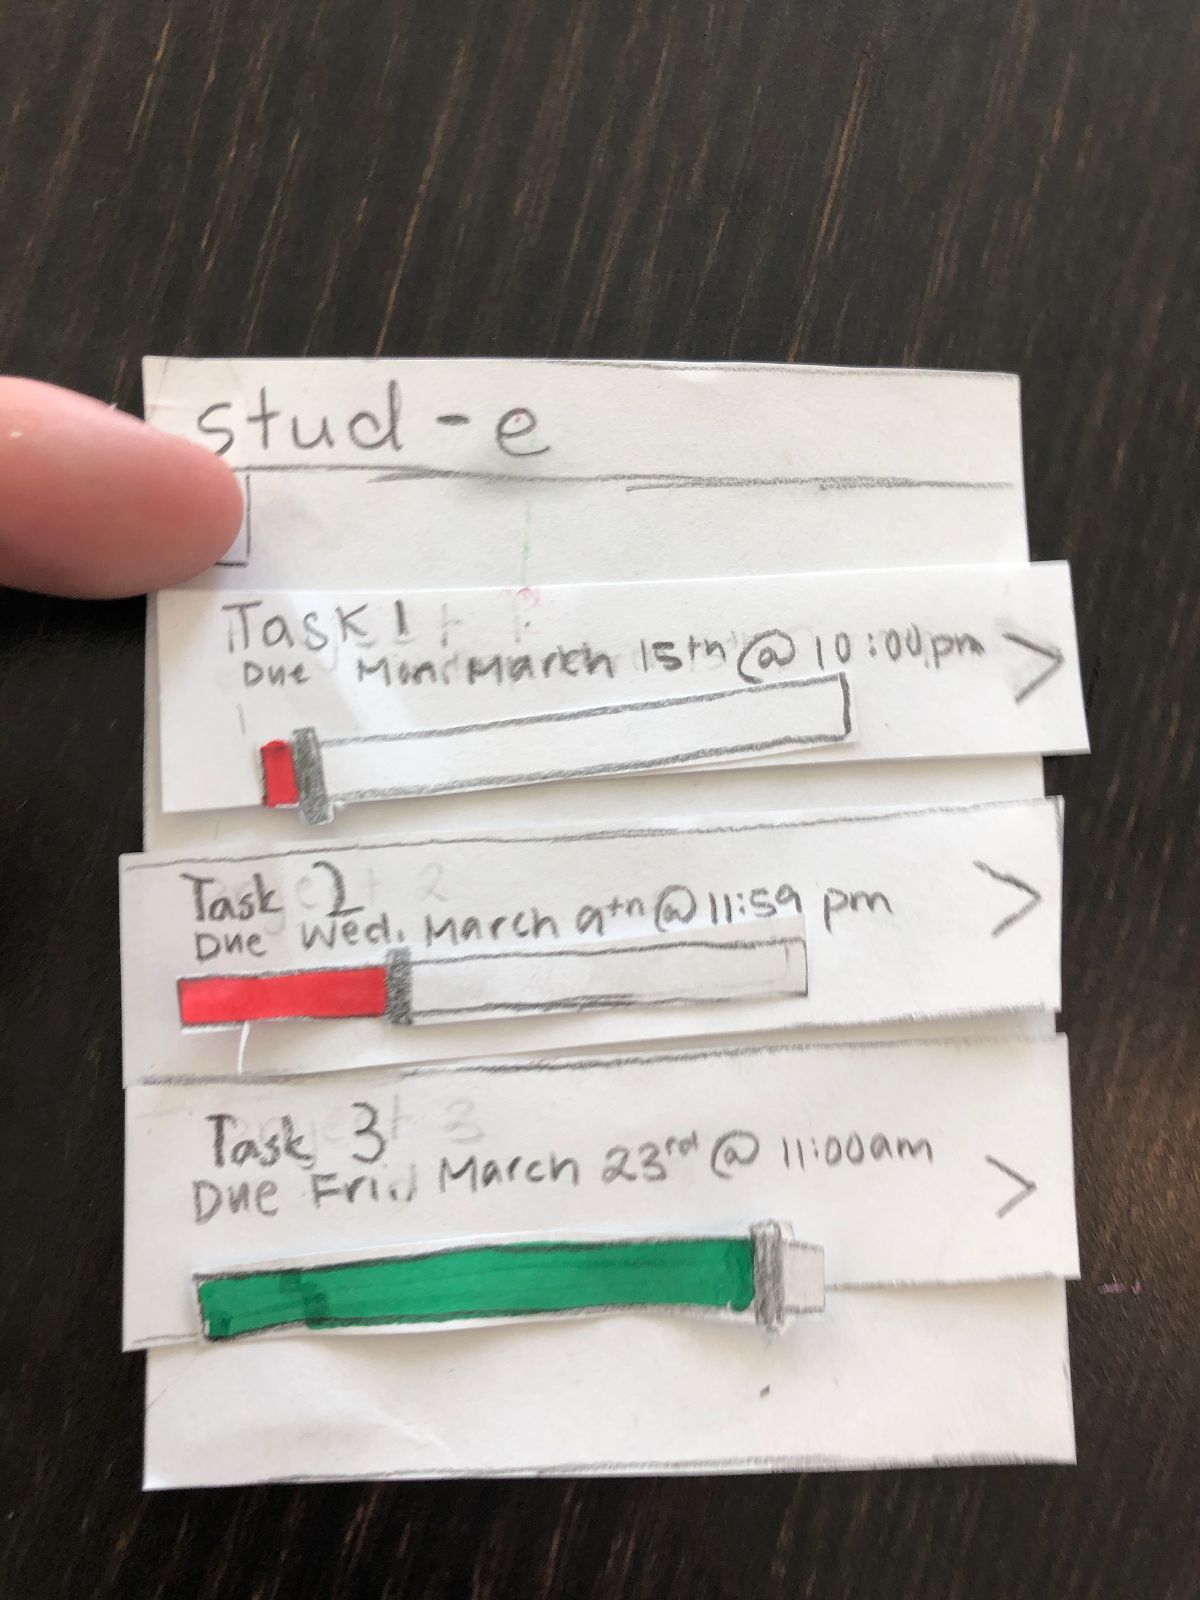 stud-e
Task 1
Due Mon. March 15th @ 10:00pm
>
Task 2
Due Wed. March 9th @ 11:59 pm
>
Task 3
Due Fri. March 23rd @ 11:00am
>